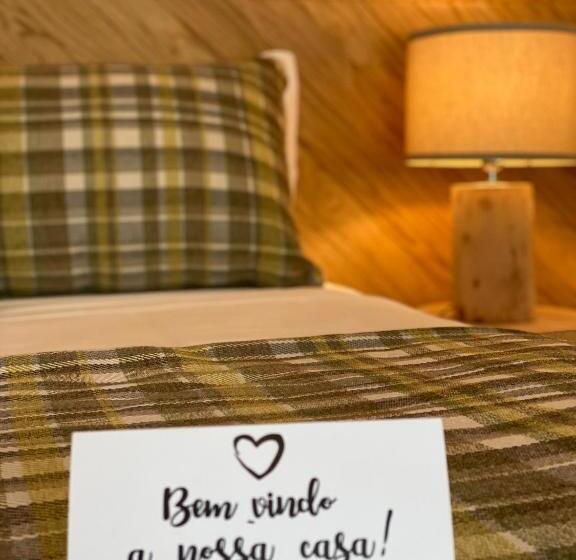 Bem vindo
a nossa casa!